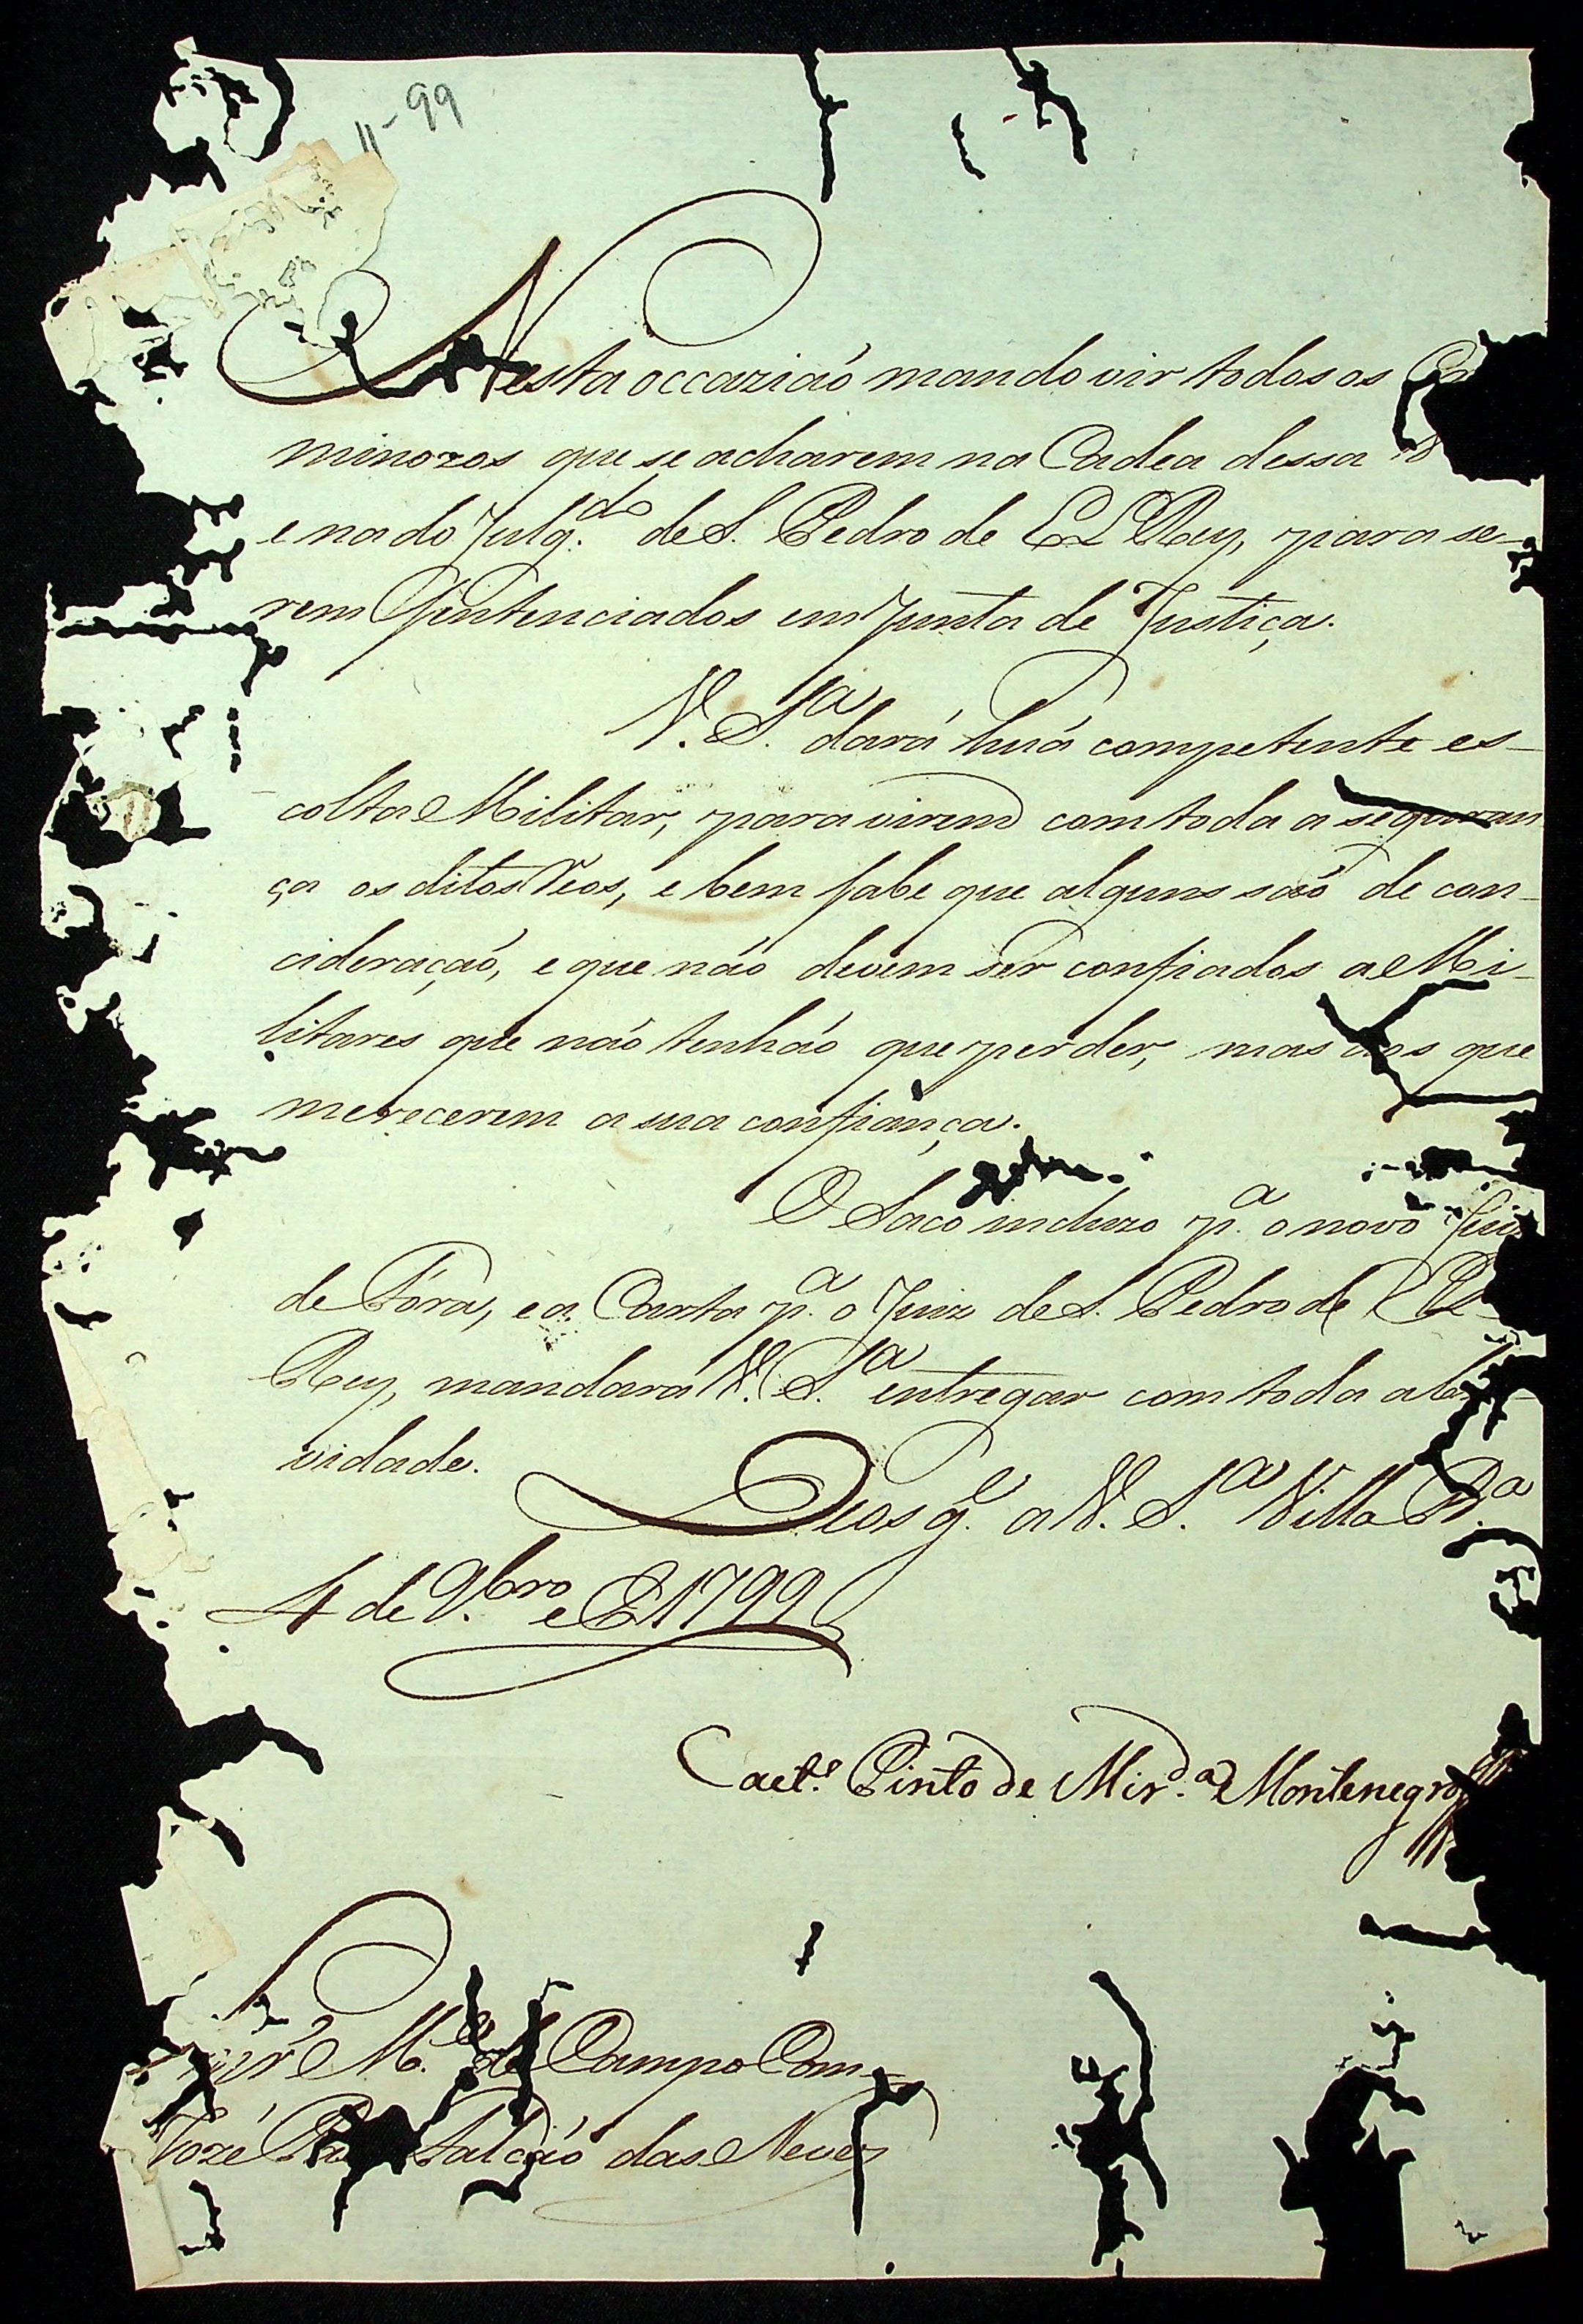 11-99
Nesta occazião mando vir todos os
minozos que se acharem na Cadea dessa
e na do Julg.do de S. Pedro de El Rey, para se-
rem Sentenciados em Junta de Justiça.
V. S.a dará huá competente es-
colta Militar, para virem com toda a seguran
ça os ditos Reos, e bem sabe que alguns saó de con-
cideraçaó, e que náo devem ser confiados a Mi-
litares que náo tenháo que perder, mas aos que
merecerem a sua confiança.
O Saco incluzo p.a o novo Juiz
de Fóra, e a Carta p.a o Juiz de S. Pedro de El
Rey, mandará V. S.a entregar com toda a
vidade.
Deos g.e a V. S.a Villa B.a
4 de 9.bro de 1799
Caet.o Pinto de Mir.da Montenegro
M.e de Campo Com.
Jozé Falcáo das Neves